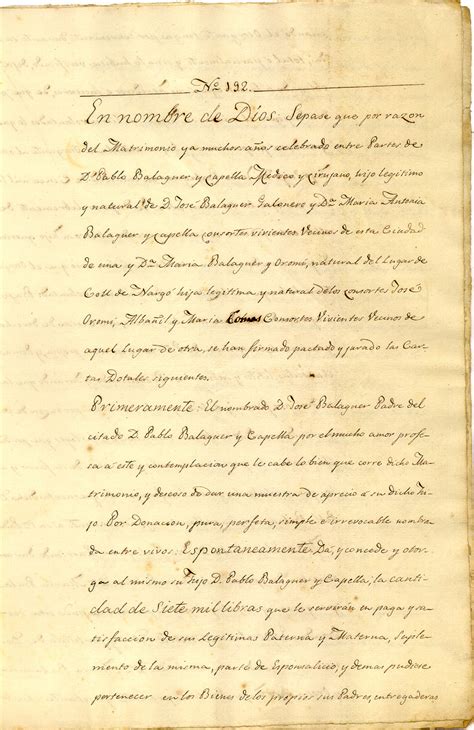 Nº 192.
En nombre de Dios: Sepase que por razon
del Matrimonio ya muchos años celebrado entre Partes de
Dⁿ Pablo Balaguer y Capella Medico y Cirujano, hijo legitimo
y natural de D. José Balaguer Galonero y Dª Maria Antonia
Balaguer y Capella consortes vivientes Vecinos de esta Ciudad
de una y Dª Maria Balaguer y Oromi, natural del Lugar de
Coll de Nargó hija legitima y natural de los consortes José
Oromi, Albañil y Maria Comas Consortes Vivientes Vecinos de
aquel Lugar de otra, se han firmado pactado y jurado las Car-
tas Dotales siguientes.
Primeramente: El nombrado D. José Balaguer Padre del
citado D. Pablo Balaguer y Capella por el mucho amor profe-
sa a este y contemplacion que le cabe lo bien que corre dicho Ma-
trimonio, y deseoso de dar una muestra de aprecio a su dicho Hi-
jo: Por Donacion, pura, perfeta, simple e irrevocable nombra-
da entre vivos: Espontaneamente Da, y concede y otor-
ga al mismo su Hijo D. Pablo Balaguer y Capella, la canti-
dad de Siete mil libras que le serviran en paga y sa-
tisfaccion de sus Legitimas Paterna y Materna, Suple-
mento de la misma, parte de Esponsalicio, y demas pudiese
pertenecer en los Bienes de los propios sus Padres, entregaderas